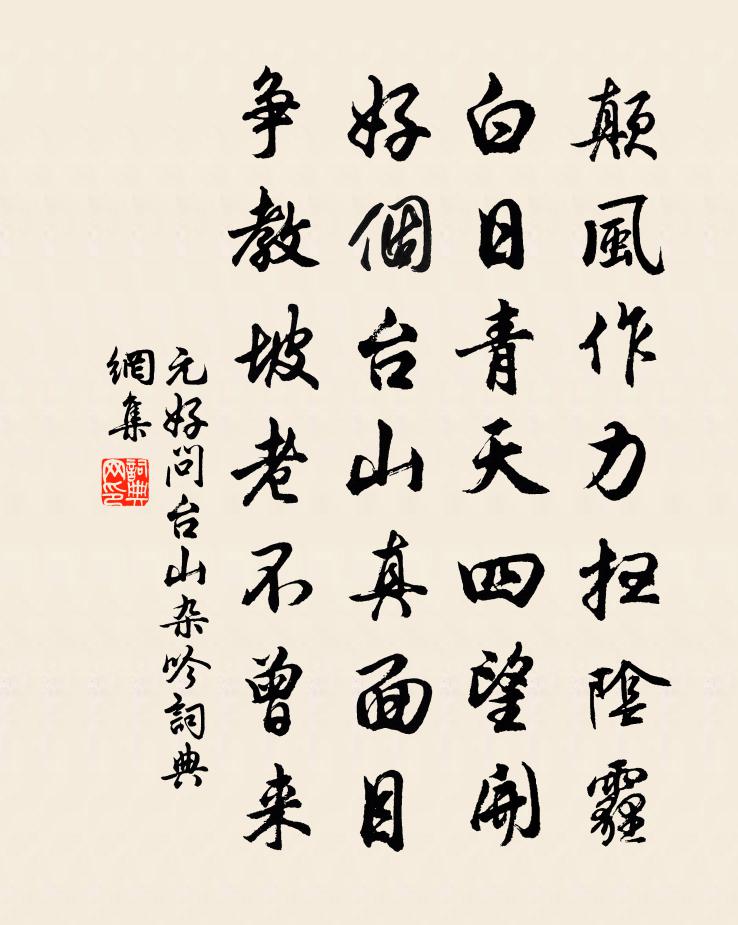 颠風作力扫陰霾
白日青天四望開
好個台山真面目
争教坡老不曾来
元好问台山杂吟詞典
網集
詞典网印